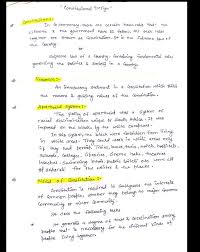 "Constitutional Design"
Constitution:-
In a democracy there are certain rules that the
citizens & the government have to follow. All such rules
together are known as Constitution. It is the Supreme law of
the Country
or
Supreme law of a Country, Containing fundamental rules
governing the politics & society in a Country.
Preamble:-
An introductory statement in a constitution which states
the reasons & guiding values of the constitution.
Apartheid System:-
The policy of apartheid was a system of
racial discrimination unique to South Africa. It was
imposed on the blacks by the white Europeans.
In this system, the blacks were forbidden from living
in white areas. They could work in white areas only
if they had permit. Trains, buses, taxis, hotels, hospitals,
schools, colleges, libraries, cinema halls, theatres,
beaches, swimming pools, public toilets were all
separate for the whites & the blacks.
Need of Constitution:-
Constitution is required to safeguard the interests
of common people, whether they belong to major community
or minor community.
It does the following tasks
It generates a degree of trust & coordination among
people that is necessary for the different kinds of
people living together.